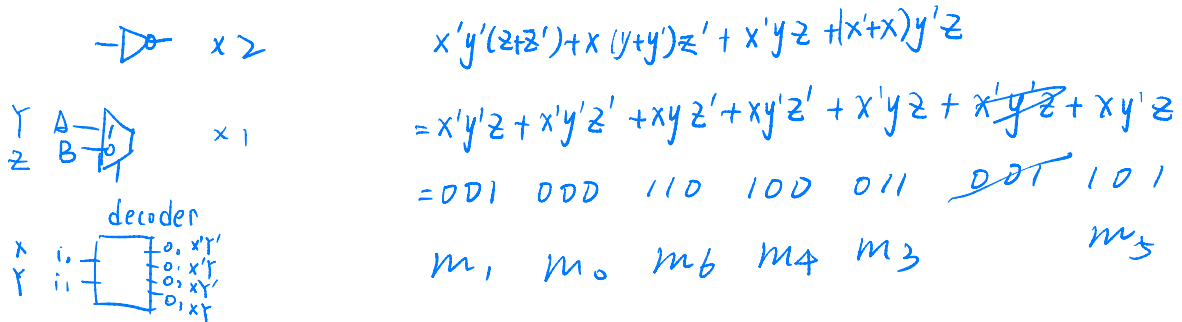 x 2
x'y'(z+z')+x(y+y')z'+x'yz+(x'+x)y'z
Y A 1
Z B 0 x 1
=x'y'z+x'y'z'+xyz'+xy'z'+x'yz+x'y'z+xy'z
=001 000 110 100 011 001 101
decoder
X i₀ 0₀ X'Y'
Y i₁ 0₁ X'Y
0₂ XY'
0₃ XY
m₁ m₀ m6 m4 m3 m5